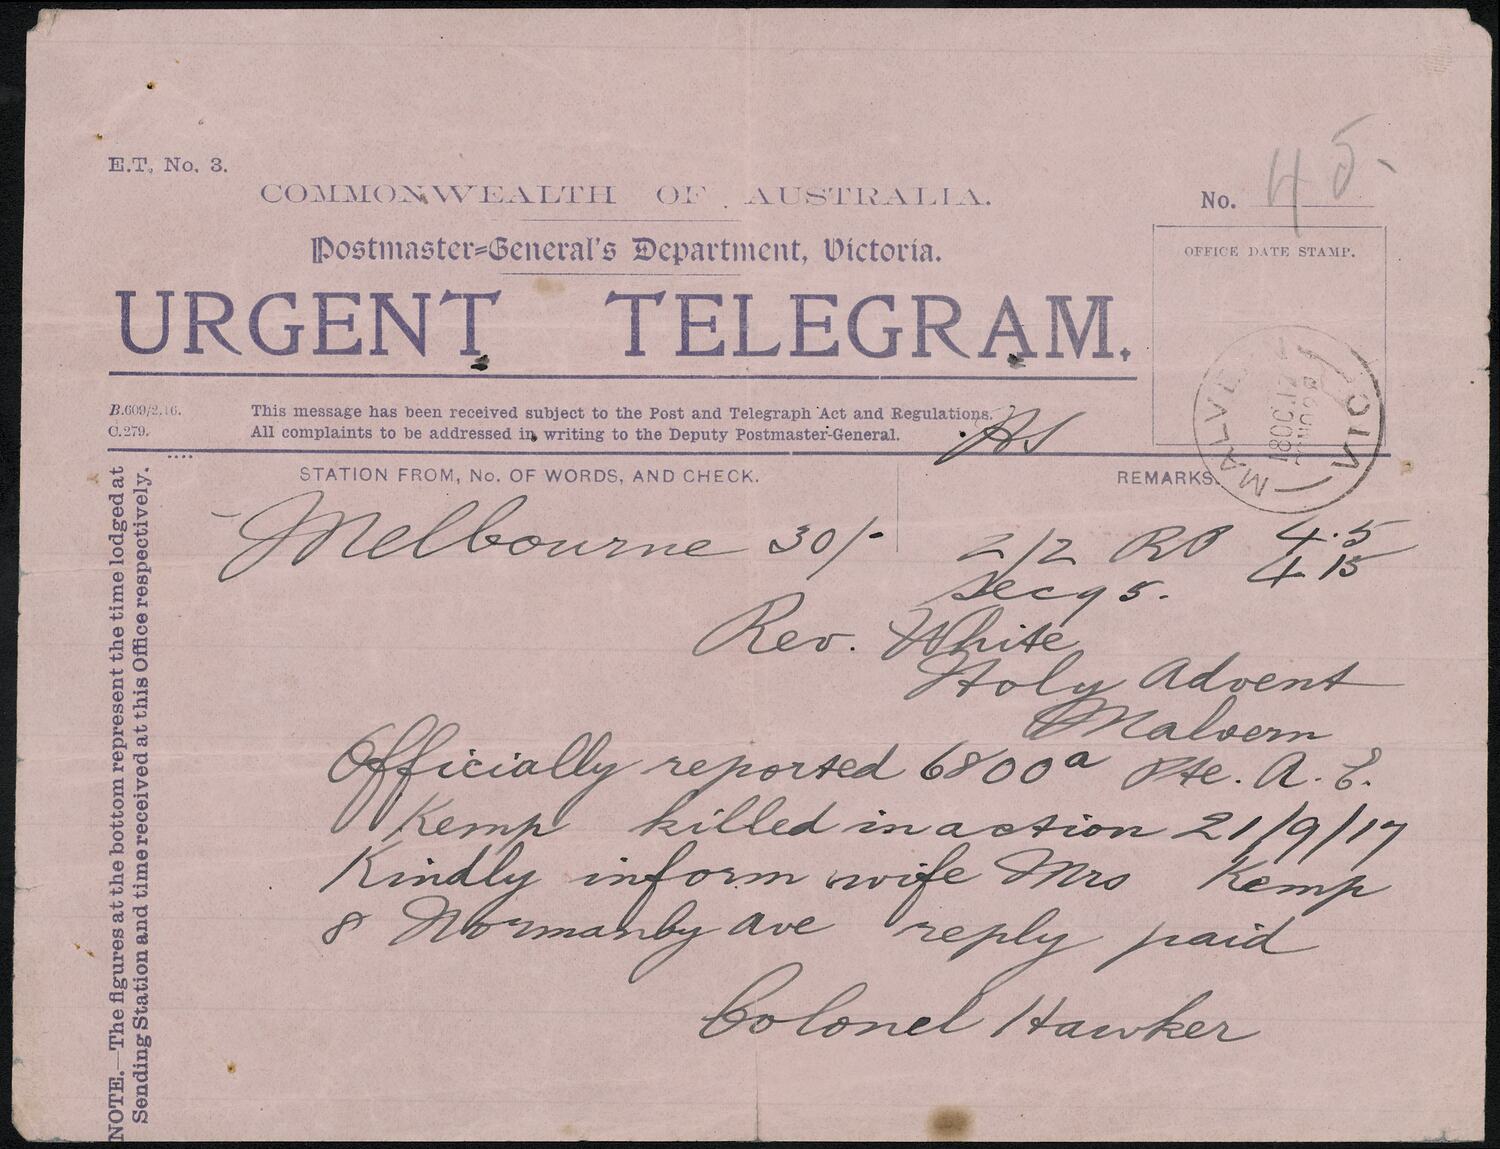 E.T. No. 3.
COMMONWEALTH OF AUSTRALIA.
No. 45.
Postmaster-General's Department, Victoria.
OFFICE DATE STAMP.
URGENT TELEGRAM.
MALVERN VIC
18OC17
B.609/2.16.
C.279.
This message has been received subject to the Post and Telegraph Act and Regulations.
All complaints to be addressed in writing to the Deputy Postmaster-General.
STATION FROM, No. OF WORDS, AND CHECK.
REMARKS.
Melbourne 30/- 2/2 RP 4.5
4 15
Rev. White
Holy Advent
Malvern
Officially reported 6800a Pte. A. E.
Kemp killed in action 21/9/17
Kindly inform wife Mrs Kemp
8 Normanby Ave reply paid
Colonel Hawker
NOTE.—The figures at the bottom represent the time lodged at
Sending Station and time received at this Office respectively.